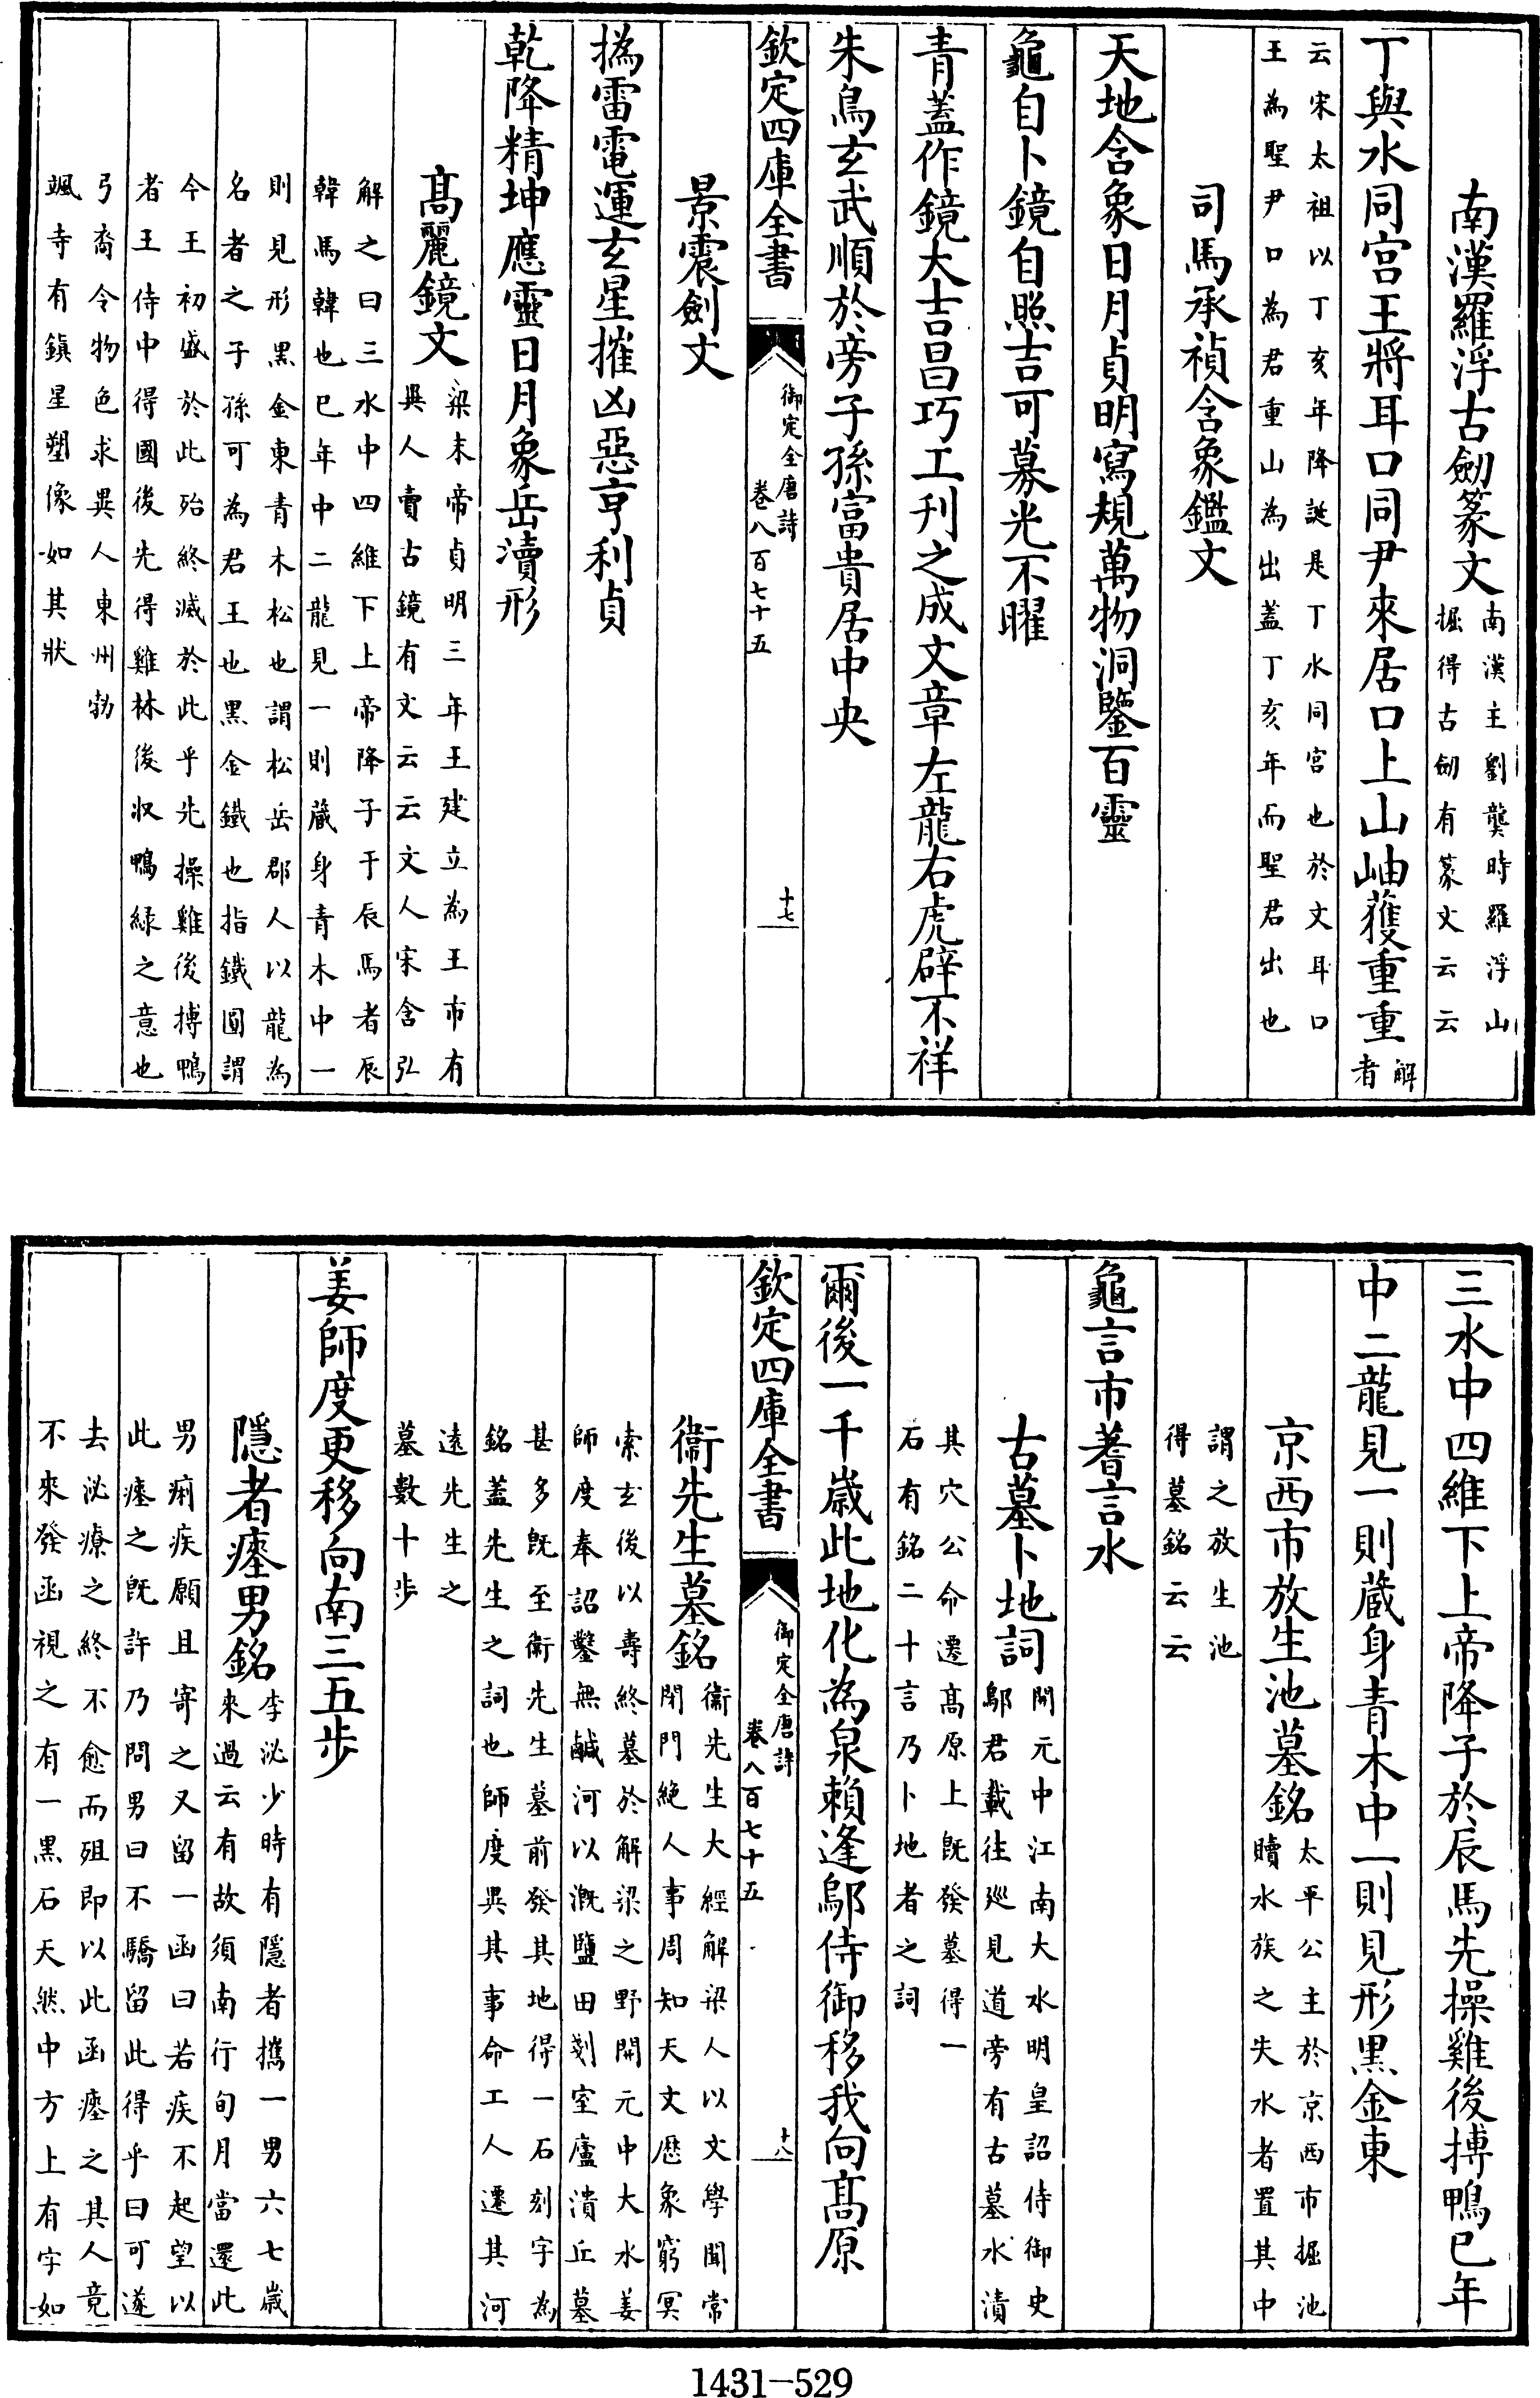 南漢羅浮古劒篆文南漢主劉龑時羅浮山
掘得古劒有篆文云云
丁與水同宮王將耳口同尹來居口上山岫獲重重解
者
云宋太祖以丁亥年降誕是丁水同宮也於文耳口
王為聖尹口為君重山為出蓋丁亥年而聖君出也
司馬承禎含象鑑文
天地含象日月貞明寫規萬物洞鑒百靈
龜自卜鏡自照吉可募光不曜
青蓋作鏡大吉昌巧工刊之成文章左龍右虎辟不祥
朱鳥玄武順於旁子孫富貴居中央
欽定四庫全書
御定全唐詩
卷八百七十五
十七
景震劍文
撝雷電運玄星摧凶惡亨利貞
乾降精坤應靈日月象岳瀆形
高麗鏡文梁末帝貞明三年王建立為王市有
異人賣古鏡有文云云文人宋含弘
解之曰三水中四維下上帝降子于辰馬者辰
韓馬韓也巳年中二龍見一則藏身青木中一
則見形黑金東青木松也謂松岳郡人以龍為
名者之子孫可為君王也黑金鐵也指鐵圓謂
今王初盛於此殆終滅於此乎先操雞後搏鴨
者王侍中得國後先得雞林後收鴨緑之意也
弓裔令物色求異人東州勃
颯寺有鎮星塑像如其狀
三水中四維下上帝降子於辰馬先操雞後搏鴨巳年
中二龍見一則蔵身青木中一則見形黑金東
京西市放生池墓銘太平公主於京西市掘池
贖水族之失水者置其中
謂之放生池
得墓銘云云
龜言市蓍言水
古墓卜地詞開元中江南大水明皇詔侍御史
鄔君載往廵見道旁有古墓水漬
其穴公命遷高原上既發墓得一
石有銘二十言乃卜地者之詞
爾後一千歲此地化為泉賴逢鄔侍御移我向高原
欽定四庫全書
御定全唐詩
卷八百七十五
十八
衞先生墓銘衞先生大經解梁人以文學聞常
閉門絶人事周知天文厯象窮冥
索玄後以壽終墓於解梁之野開元中大水姜
師度奉詔鑿無鹹河以溉鹽田剗室廬潰丘墓
甚多既至衞先生墓前發其地得一石刻字為
銘蓋先生之詞也師度異其事命工人遷其河
遠先生之
墓數十步
姜師度更移向南三五步
隱者瘞男銘李泌少時有隱者攜一男六七歲
來過云有故須南行旬月當還此
男痢疾願且寄之又留一函曰若疾不起望以
此瘞之既許乃問男曰不驕留此得乎曰可遂
去泌療之終不愈而殂即以此函瘞之其人竟
不來發函視之有一黑石天然中方上有字如
1431-529